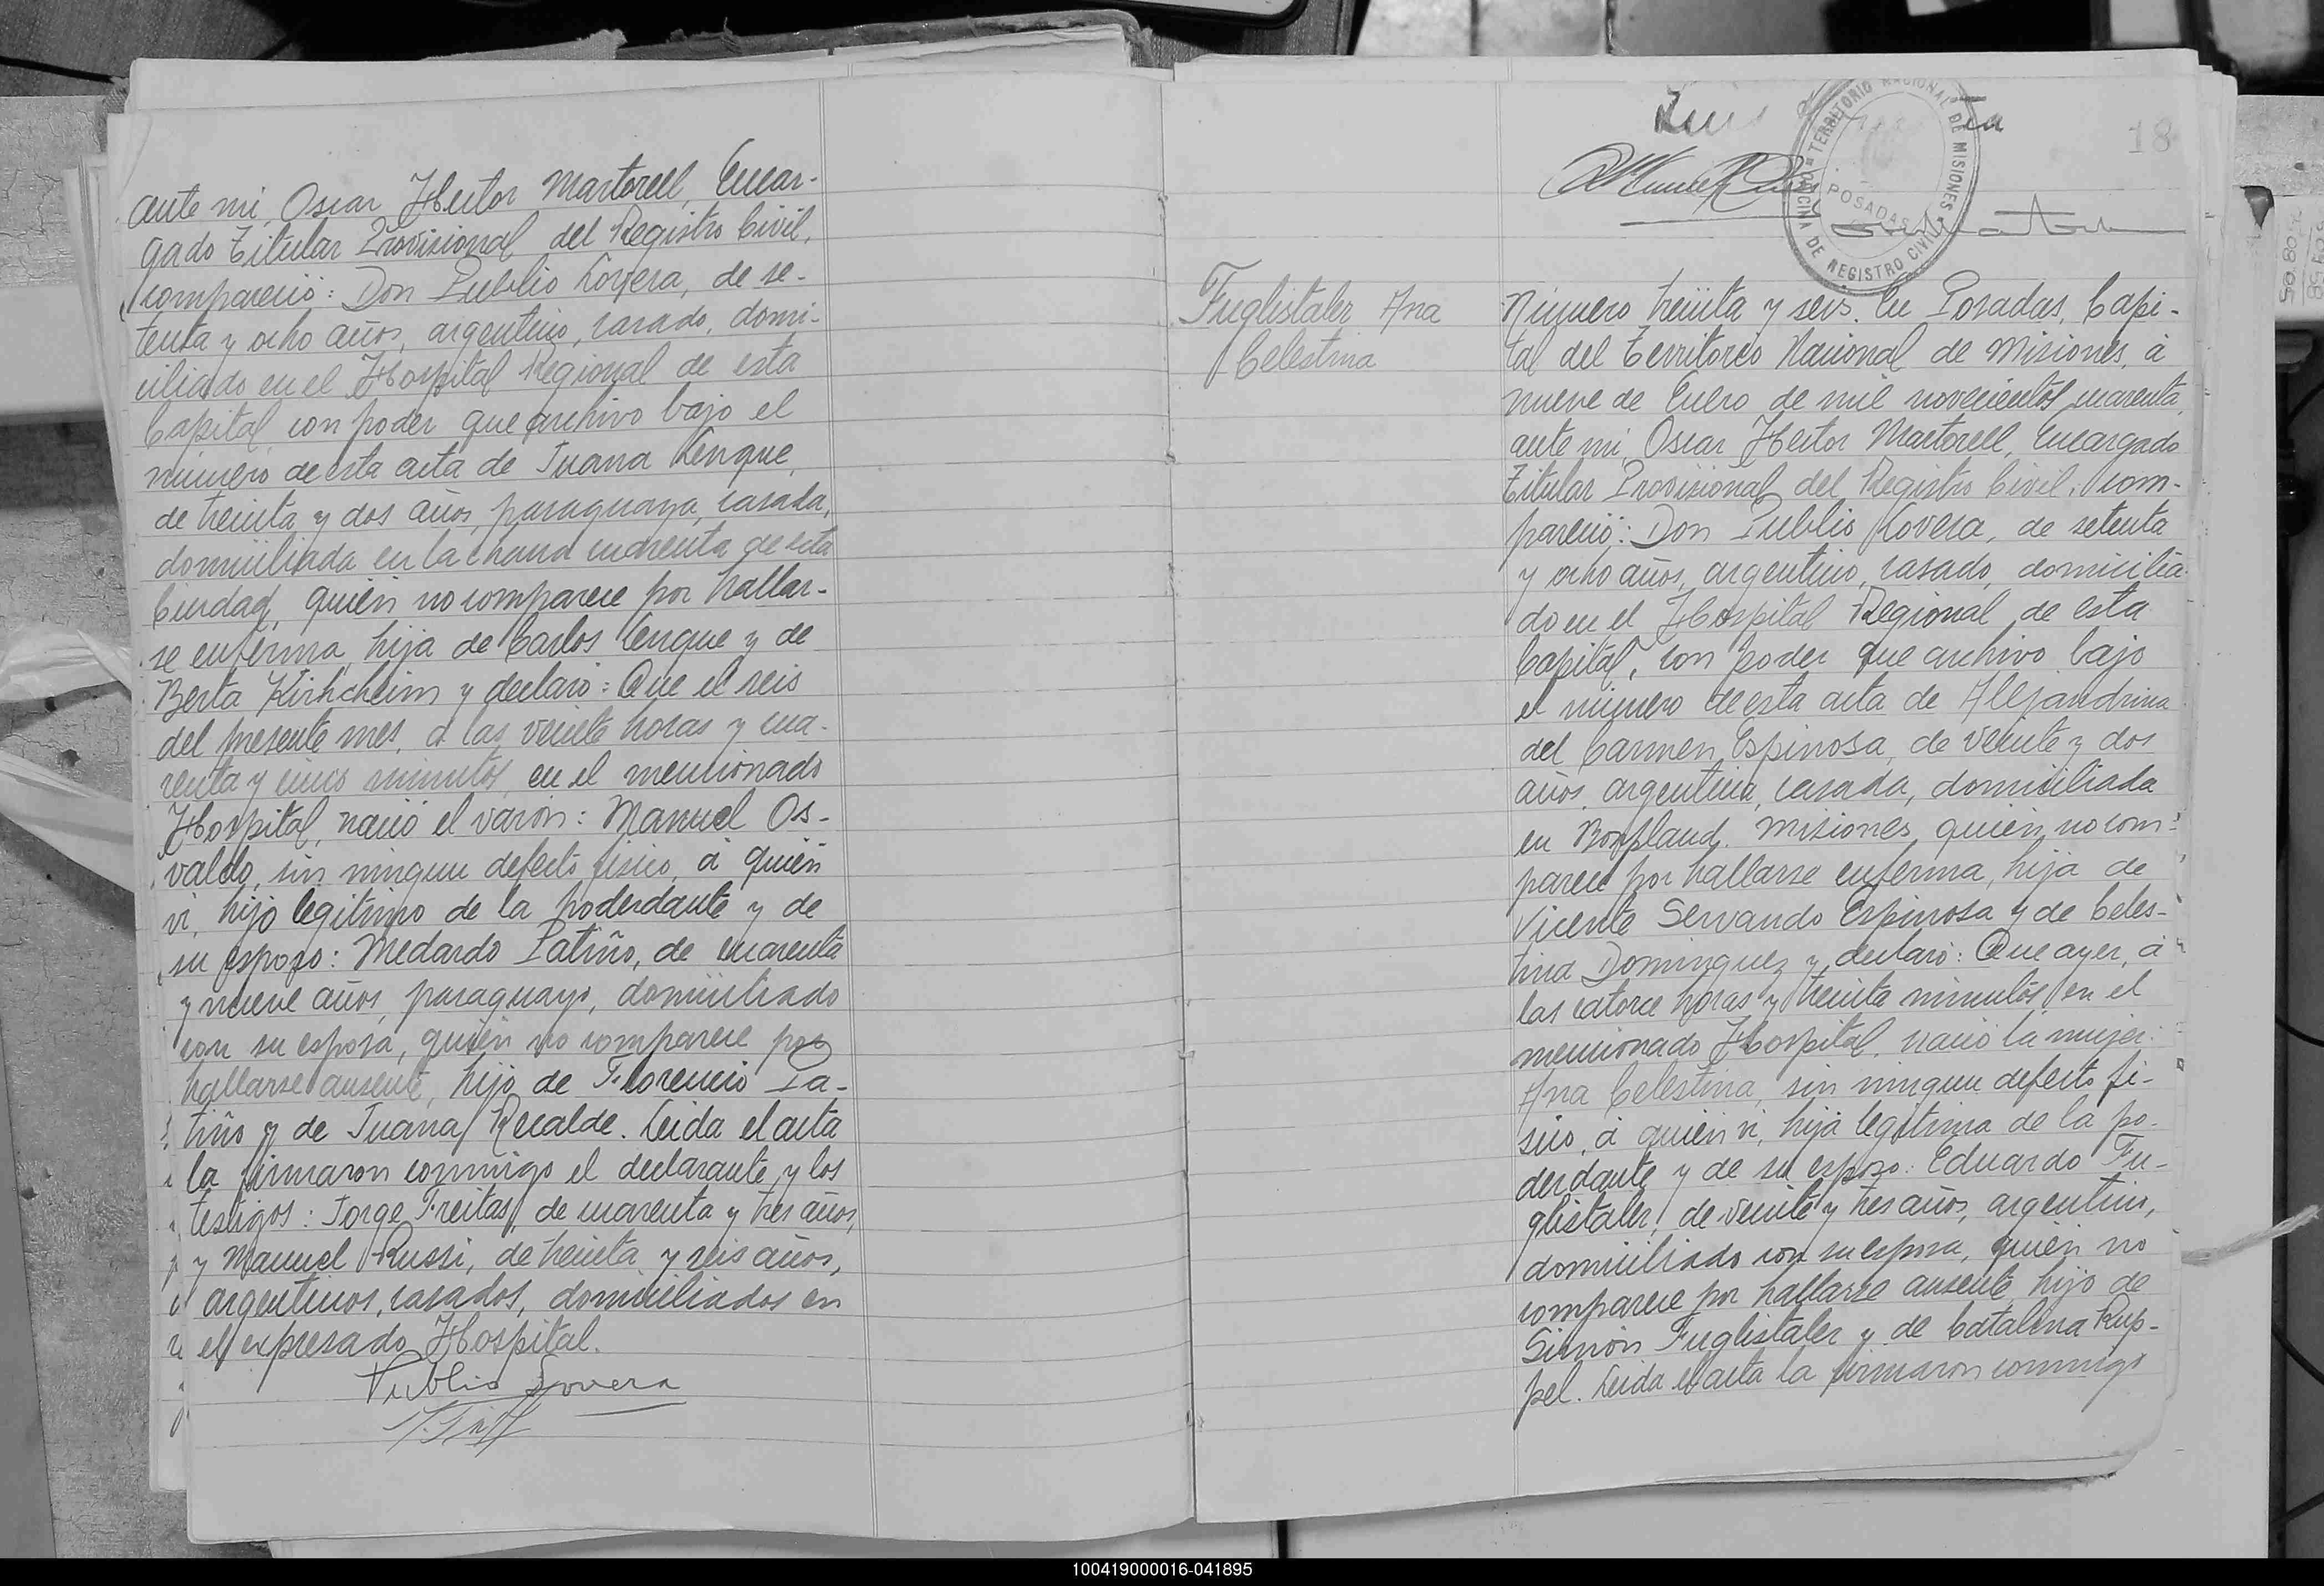 ante mi, Oscar Hector Martorell, Encar-
gado Titular Provisional del Registro Civil,
compareció: Don Publio Lovera, de se-
tenta y ocho años, argentino, casado, domi-
ciliado en el Hospital Regional de esta
Capital, con poder que archivo bajo el
número de esta acta de Juana Lenque,
de treinta y dos años, paraguaya, casada,
domiciliada en la chacra cuarenta de esta
Ciudad, quién no comparece por hallar-
se enferma, hija de Carlos Lenque y de
Berta Kirhcheim y declaró: Que el seis
del presente mes, á las veinte horas y cua-
renta y cinco minutos, en el mencionado
Hospital, nació el varón: Manuel Os-
valdo, sin ningun defecto físico, á quién
vi, hijo legítimo de la poderdante y de
su esposo: Medardo Patiño, de cuarenta
y nueve años, paraguayo, domiciliado
con su esposa, quién no comparece por
hallarse ausente, hijo de Florencio Pa-
tiño y de Juana Recalde. Leida el acta
la firmaron conmigo el declarante y los
testigos: Jorge Freitas, de cuarenta y tres años,
y Manuel Russi, de treinta y seis años,
argentinos, casados, domiciliados en
el expresado Hospital.
Publio Lovera
18
TERRITORIO NACIONAL DE MISIONES
POSADAS
OFICINA DE REGISTRO CIVIL
Fuglistaler Ana
Celestina
Número treinta y seis. En Posadas, Capi-
tal del Territorio Nacional de Misiones, á
nueve de Enero de mil novecientos cuarenta,
ante mi, Oscar Hector Martorell, Encargado
Titular Provisional del Registro Civil, com-
pareció: Don Publio Lovera, de setenta
y ocho años, argentino, casado, domicilia-
do en el Hospital Regional de esta
Capital, con poder que archivo bajo
el número de esta acta de Alejandrina
del Carmen Espinosa, de veinte y dos
años, argentina, casada, domiciliada
en Bonpland, Misiones, quién no com-
parece por hallarse enferma, hija de
Vicente Servando Espinosa y de Celes-
tina Dominguez y declaró: Que ayer, á
las catorce horas y treinta minutos, en el
mencionado Hospital, nació la mujer:
Ana Celestina, sin ningun defecto fí-
sico, á quién vi, hija legítima de la po-
derdante y de su esposo: Eduardo Fu-
glistaler, de veinte y tres años, argentino,
domiciliado con su esposa, quién no
comparece por hallarse ausente, hijo de
Simón Fuglistaler y de Catalina Rup-
pel. Leida el acta la firmaron conmigo
100419000016-041895